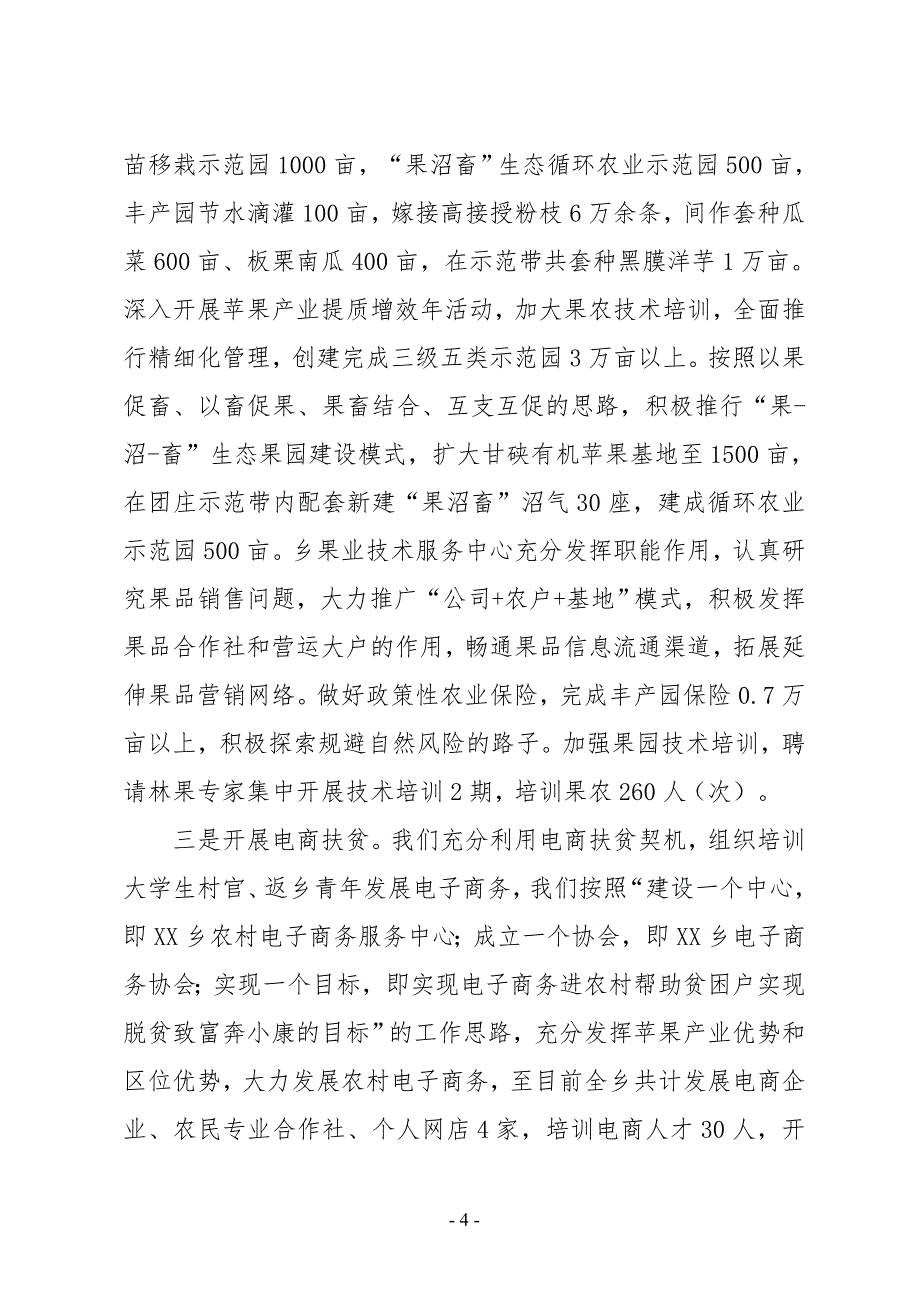 苗移栽示范园1000亩，“果沼畜”生态循环农业示范园500亩，
丰产园节水滴灌100亩，嫁接高接授粉枝6万余条，间作套种瓜
菜600亩、板栗南瓜400亩，在示范带共套种黑膜洋芋1万亩。
深入开展苹果产业提质增效年活动，加大果农技术培训，全面推
行精细化管理，创建完成三级五类示范园3万亩以上。按照以果
促畜、以畜促果、果畜结合、互支互促的思路，积极推行“果-
沼-畜”生态果园建设模式，扩大甘硖有机苹果基地至1500亩，
在团庄示范带内配套新建“果沼畜”沼气30座，建成循环农业
示范园500亩。乡果业技术服务中心充分发挥职能作用，认真研
究果品销售问题，大力推广“公司+农户+基地”模式，积极发挥
果品合作社和营运大户的作用，畅通果品信息流通渠道，拓展延
伸果品营销网络。做好政策性农业保险，完成丰产园保险0.7万
亩以上，积极探索规避自然风险的路子。加强果园技术培训，聘
请林果专家集中开展技术培训2期，培训果农260人（次）。
三是开展电商扶贫。我们充分利用电商扶贫契机，组织培训
大学生村官、返乡青年发展电子商务，我们按照“建设一个中心，
即XX乡农村电子商务服务中心；成立一个协会，即XX乡电子商
务协会；实现一个目标，即实现电子商务进农村帮助贫困户实现
脱贫致富奔小康的目标”的工作思路，充分发挥苹果产业优势和
区位优势，大力发展农村电子商务，至目前全乡共计发展电商企
业、农民专业合作社、个人网店4家，培训电商人才30人，开
- 4 -